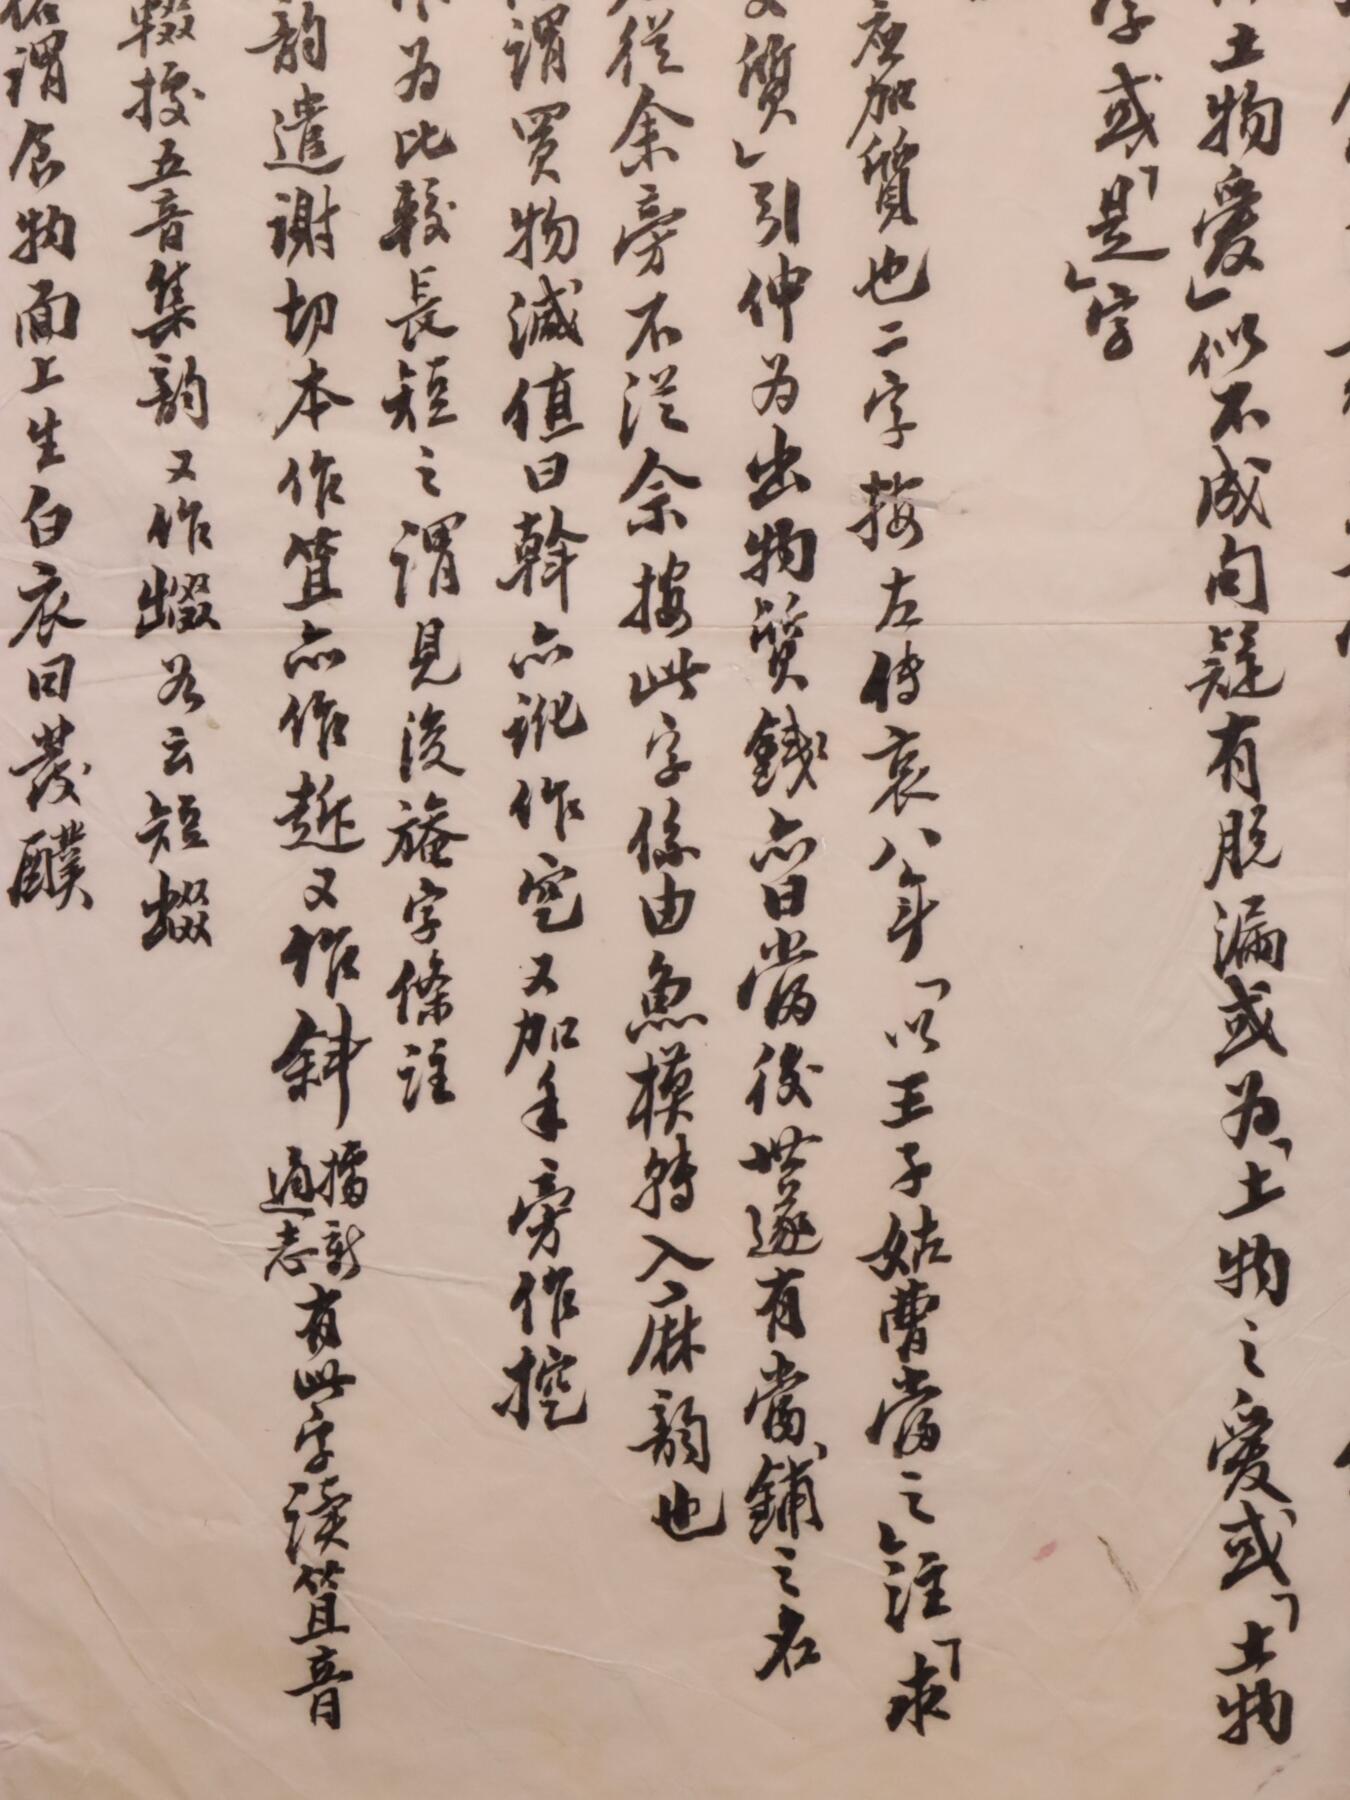 土物愛」似不成句疑有脫漏或為「土物之愛或「土物
字或「是」字
應加質也二字按左傳哀八年「以王子姑曹當之」註「求
質」引伸为出物質錢亦曰當後世遂有當鋪之名
從余旁不從佘按此字係由魚模轉入麻韻也
謂買物減值曰斡亦訛作窊又加手旁作挖
为比較長短之謂見後旕字條註
韵遣謝切本作笡亦作趄又作斜據新通志有此字读笡音
輟按五音集韵又作䠈右云短䠈
俗謂食物面上生白衣曰發醭